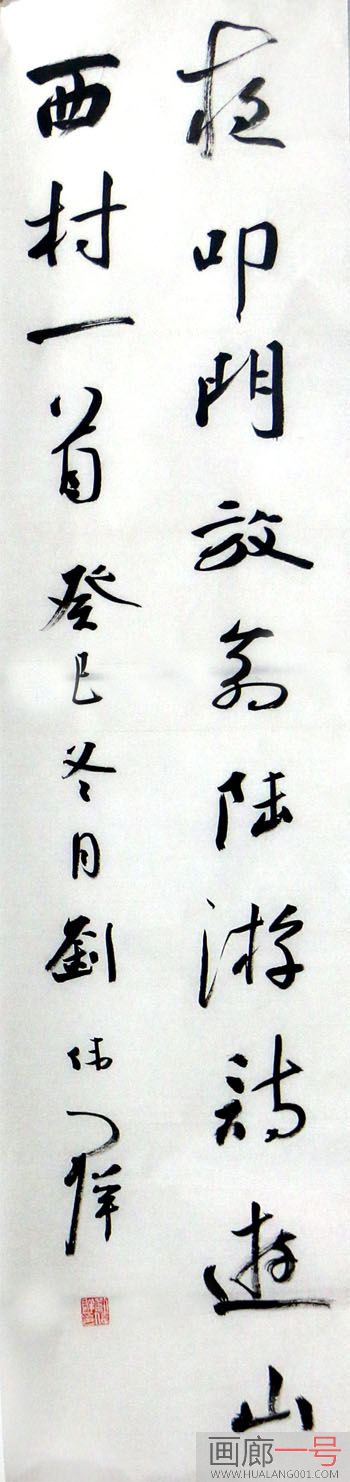 夜叩門放翁陸游詩遊山
西村一首癸巳冬月劉伟
画廊一号
WWW.HUALANG001.COM